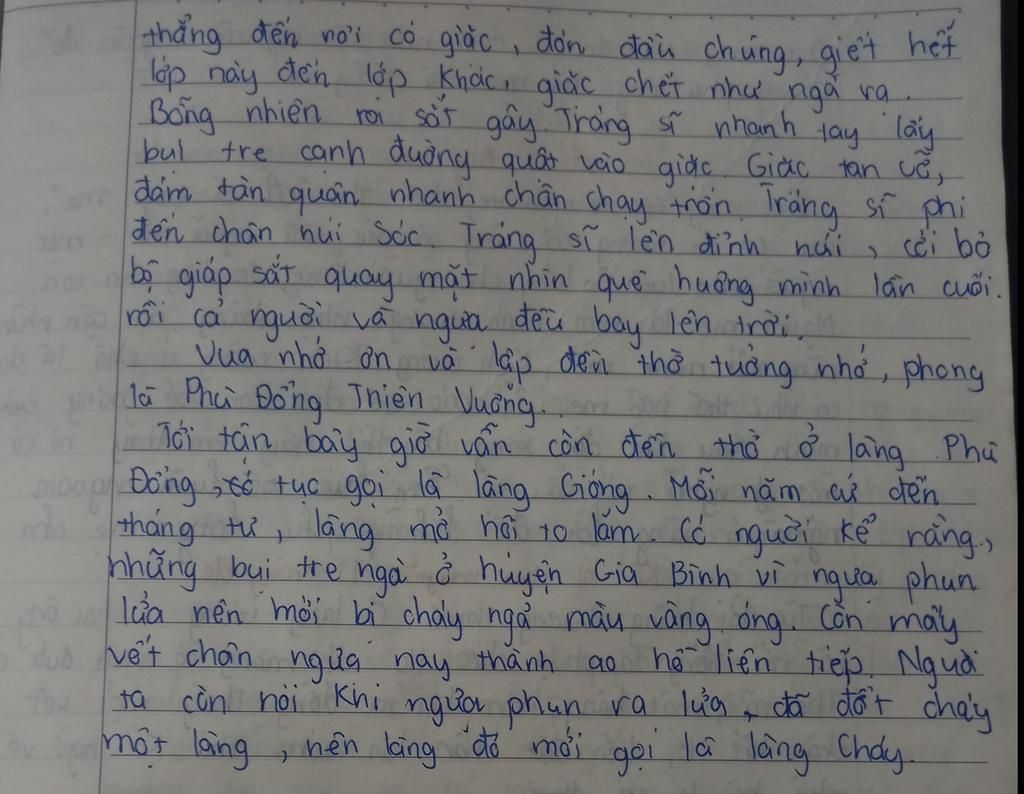 thẳng đến nơi có giặc, đón đầu chúng, giết hết
lớp này đến lớp khác, giặc chết như ngả rạ.
Bỗng nhiên roi sắt gãy. Tráng sĩ nhanh tay lấy
bụi tre cạnh đường quất vào giặc. Giặc tan vỡ,
đám tàn quân nhanh chân chạy trốn. Tráng sĩ phi
đến chân núi Sóc. Tráng sĩ lên đỉnh núi, cởi bỏ
bộ giáp sắt quay mặt nhìn quê hương mình lần cuối.
rồi cả người và ngựa đều bay lên trời.
Vua nhớ ơn và lập đền thờ tưởng nhớ, phong
là Phù Đổng Thiên Vương.
Tới tận bây giờ vẫn còn đền thờ ở làng Phù
Đổng, tục gọi là làng Gióng. Mỗi năm cứ đến
tháng tư, làng mở hội to lắm. Có người kể rằng,
những bụi tre ngà ở huyện Gia Bình vì ngựa phun
lửa nên mới bị cháy ngả màu vàng óng. Còn mấy
vết chân ngựa nay thành ao hồ liên tiếp. Người
ta còn nói khi ngựa phun ra lửa, đã đốt cháy
một làng, nên làng đó mới gọi là làng Cháy.